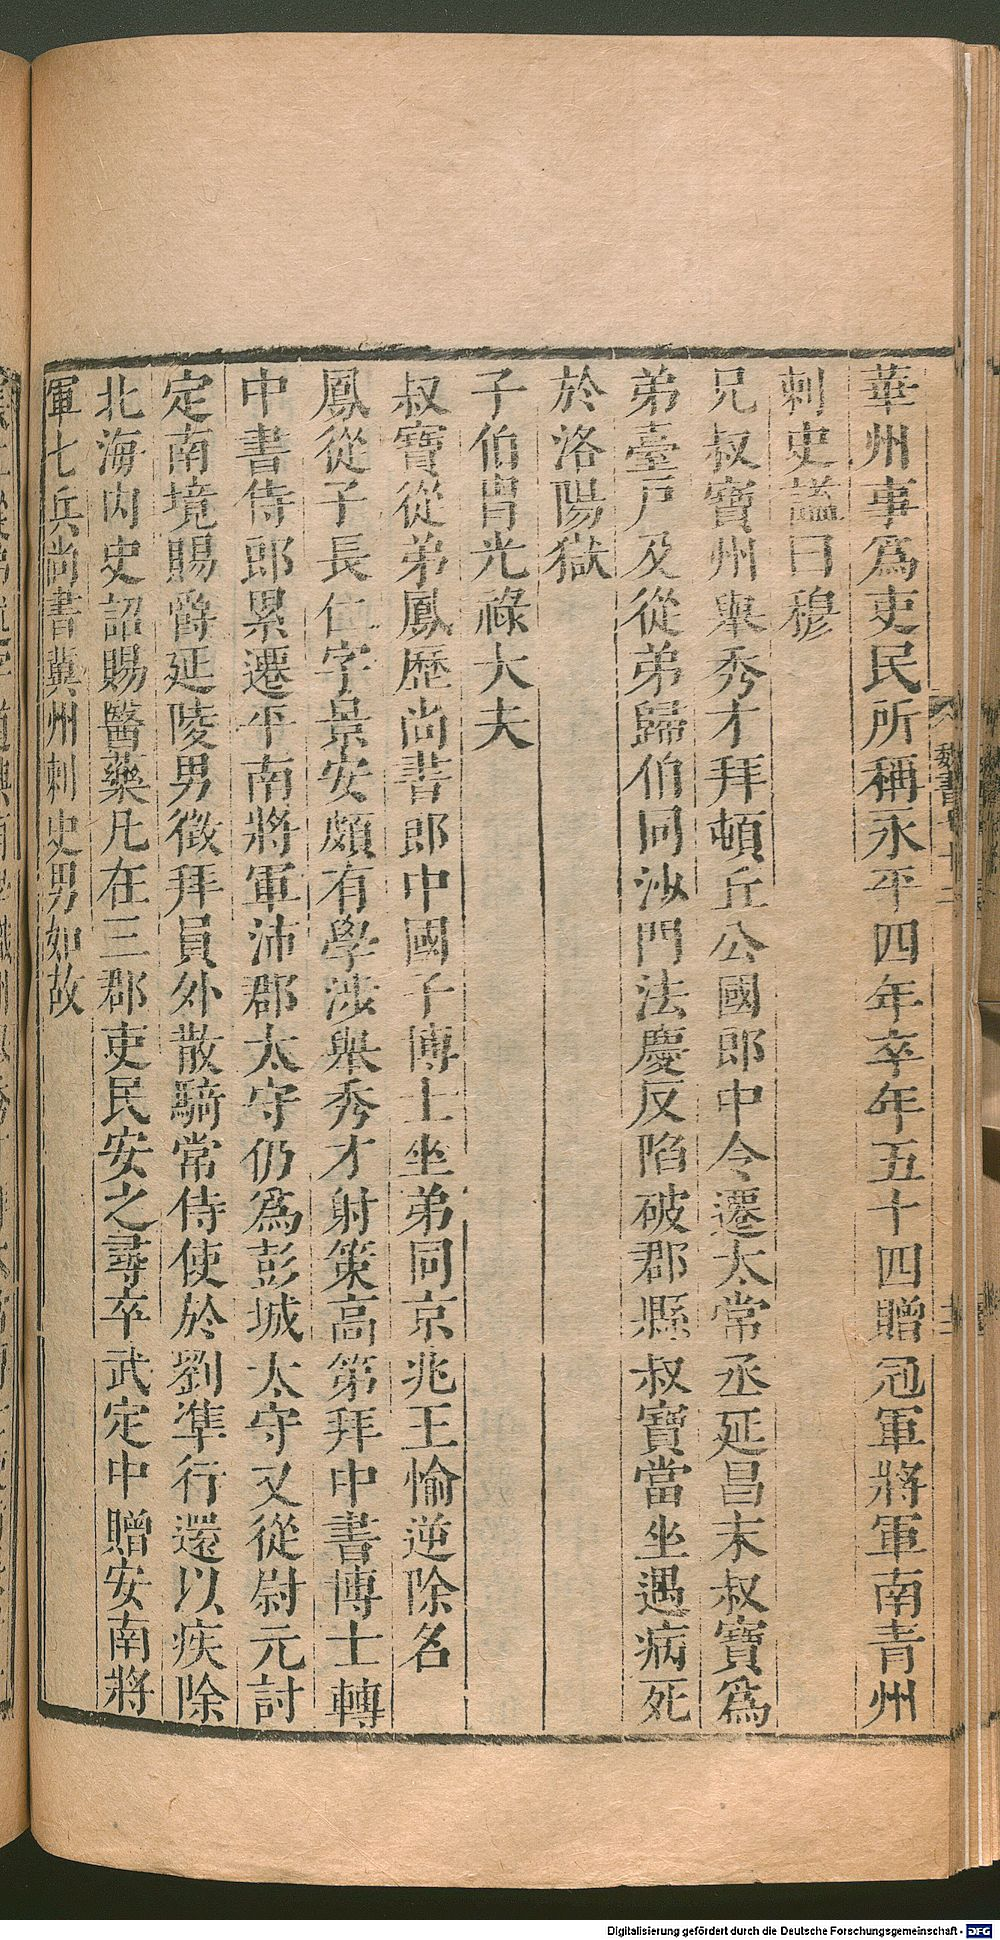 華州事爲吏民所稱永平四年卒年五十四贈冠軍將軍南青州
刺史謚曰穆
兄叔寶州舉秀才拜頓丘公國郎中令遷太常丞延昌末叔寶爲
弟臺戶及從弟歸伯同沙門法慶反陷破郡縣叔寶當坐遇病死
於洛陽獄
子伯胄光祿大夫
叔寶從弟鳳歷尚書郎中國子博士坐弟同京兆王愉逆除名
鳳從子長仁字景安頗有學涉舉秀才射策高第拜中書博士轉
中書侍郎累遷平南將軍沛郡太守仍爲彭城太守又從尉元討
定南境賜爵延陵男徵拜員外散騎常侍使於劉準行還以疾除
北海內史詔賜醫藥凡在三郡吏民安之尋卒武定中贈安南將
軍七兵尚書冀州刺史男如故
魏書
Digitalisierung gefördert durch die Deutsche Forschungsgemeinschaft - DFG